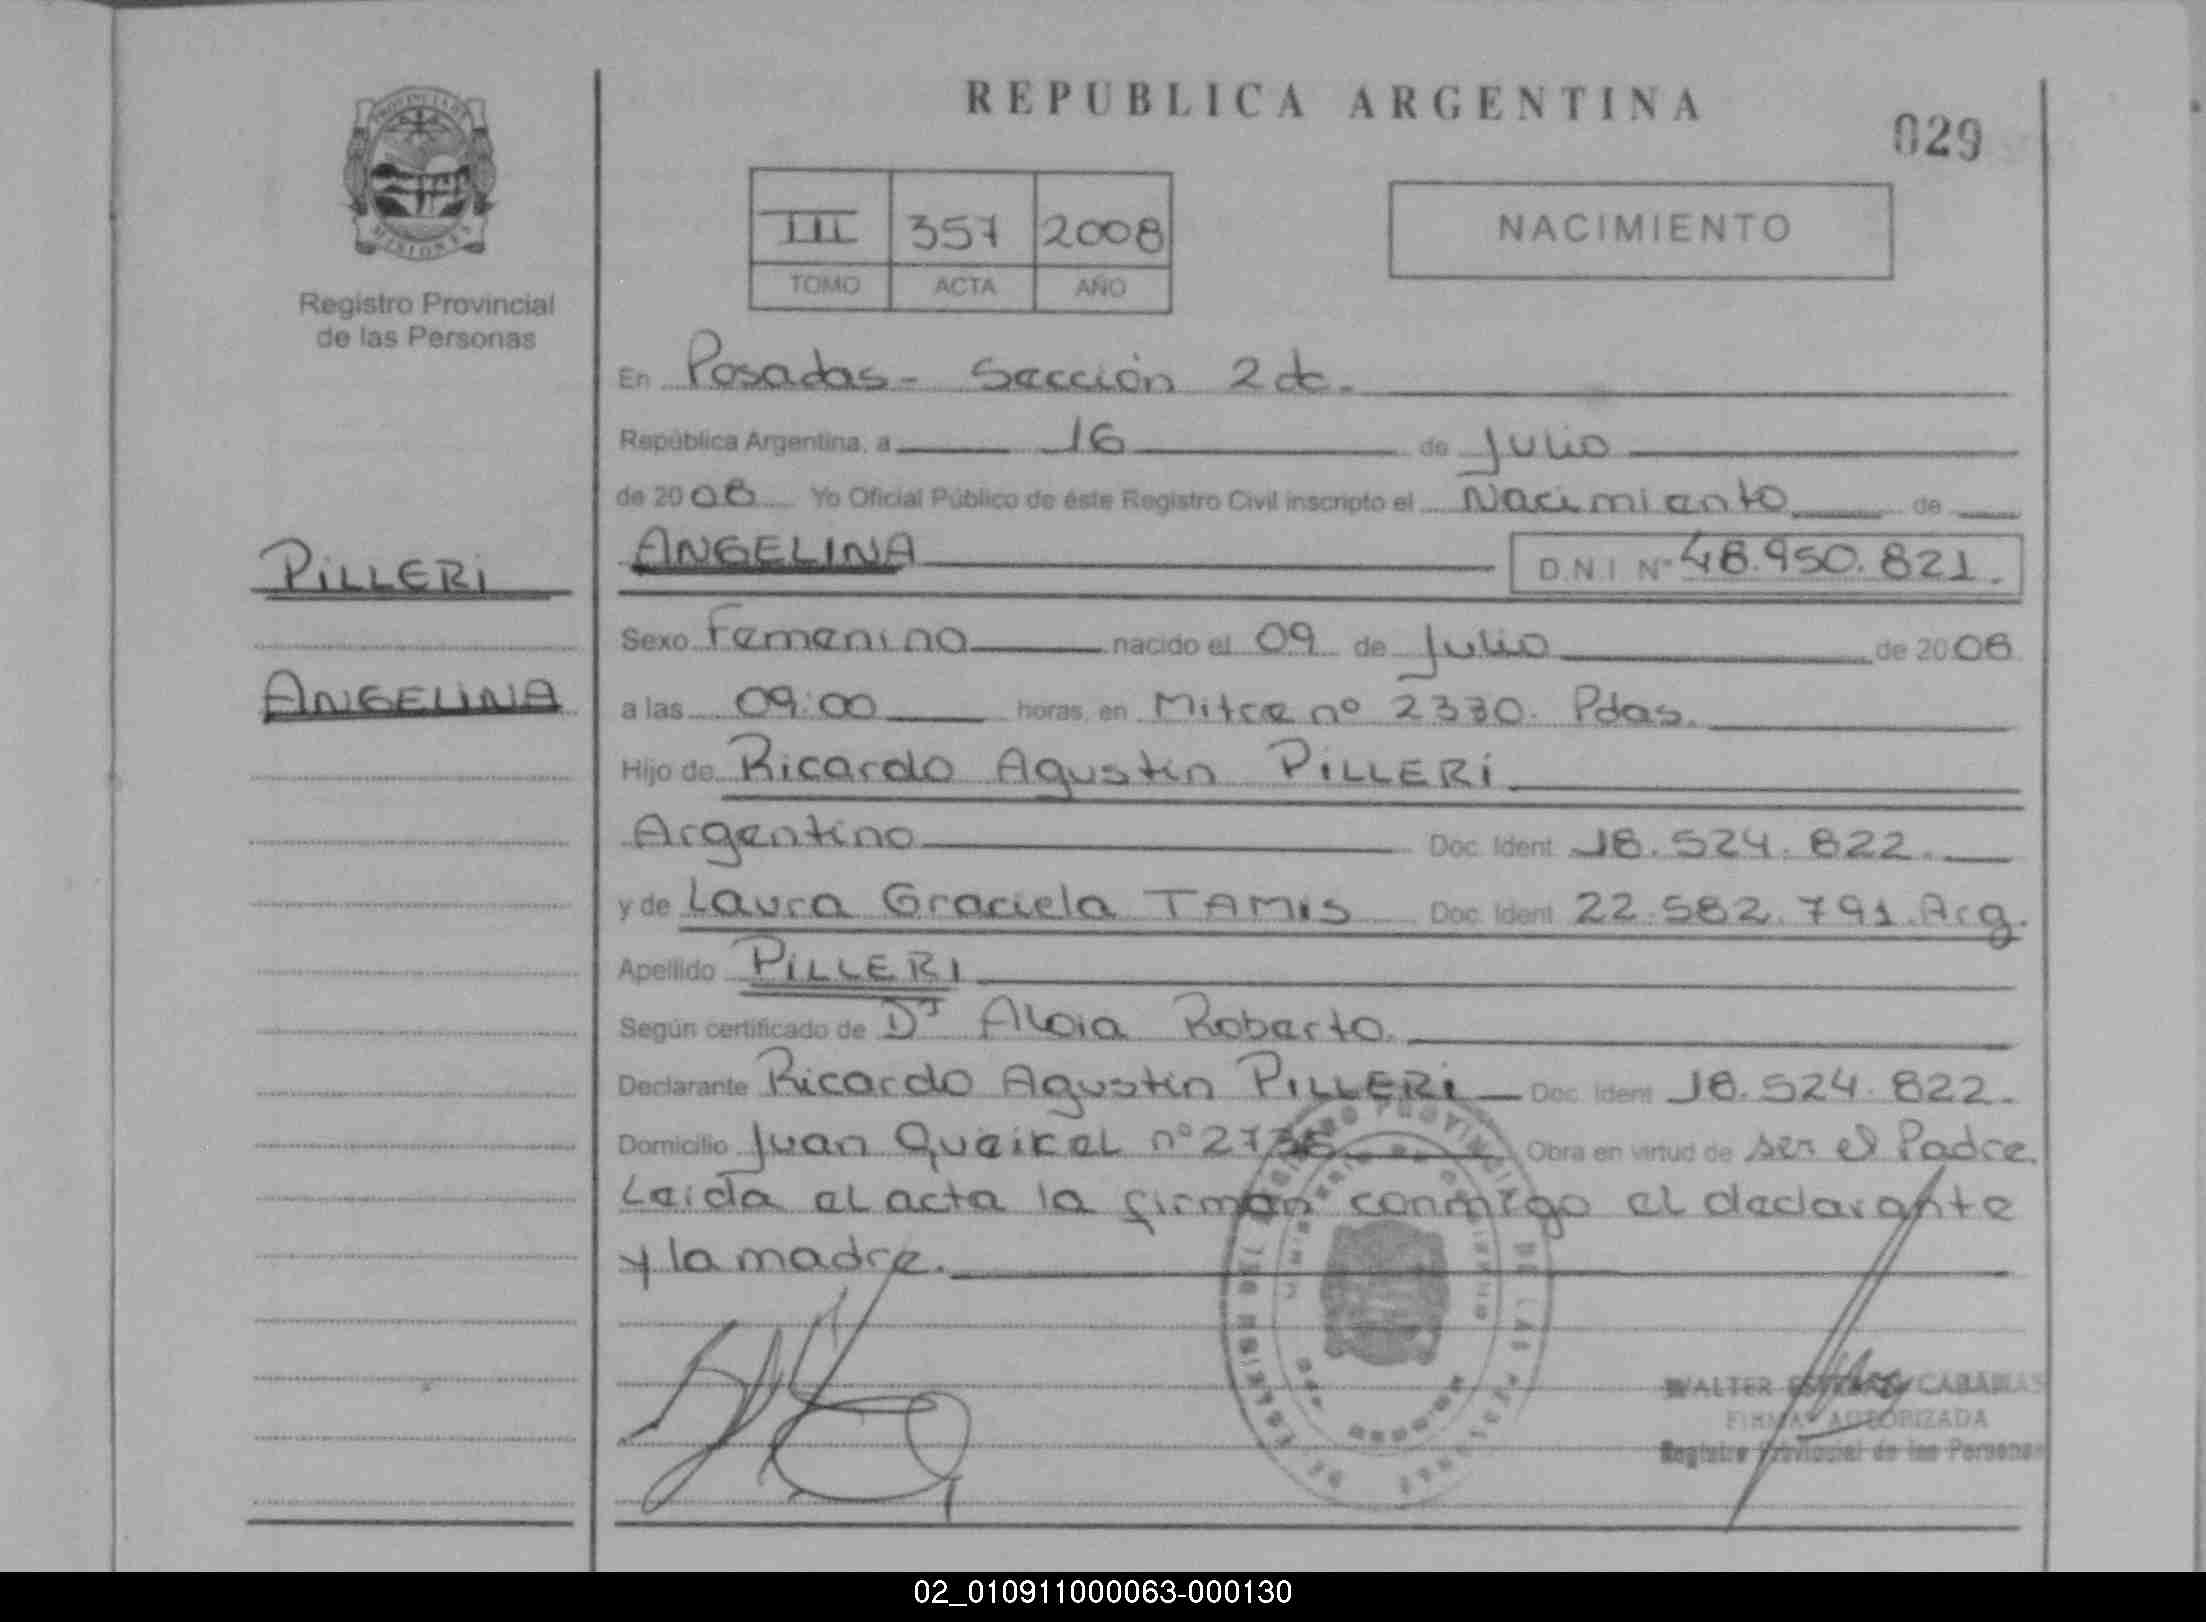 REPUBLICA ARGENTINA
029
PROVINCIA DE
MISIONES
Registro Provincial
de las Personas
III 357 2008
TOMO ACTA AÑO
NACIMIENTO
En Posadas - Sección 2da.
República Argentina, a 16 de Julio
de 2008 Yo Oficial Público de éste Registro Civil inscripto el Nacimiento de
PILLERI
ANGELINA
ANGELINA D.N.I Nº 48.950.821.
Sexo Femenino nacido el 09 de Julio de 2008
a las 09:00 horas, en Mitre nº 2330. Pdas.
Hijo de Ricardo Agustín PILLERI
Argentino Doc. Ident. 18.524.822.
y de Laura Graciela TAMIS Doc. Ident. 22.582.791 Arg.
Apellido PILLERI
Según certificado de Dr Aloia Roberto.
Declarante Ricardo Agustín PILLERI Doc. Ident 18.524.822.
Domicilio Juan Obra en virtud de ser el Padre.
Leída el acta la firman conmigo el declarante
y la madre.
WALTER
FIRMA AUTORIZADA
Registro Provincial de las Personas
02_010911000063-000130